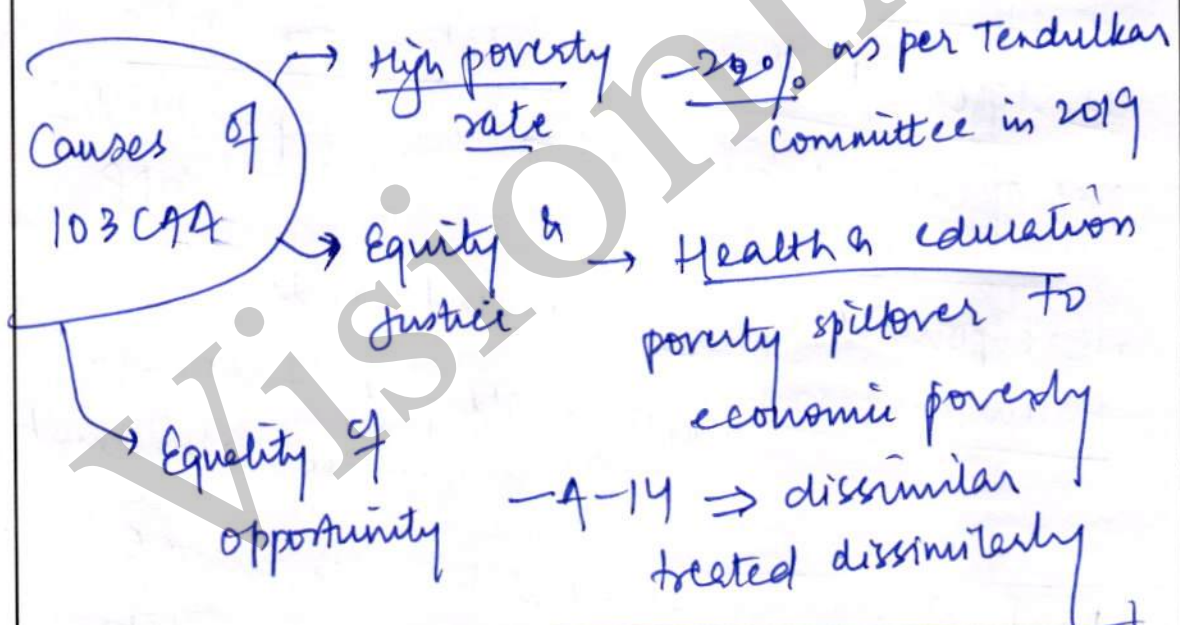 Causes of
103 CAA
→ High poverty
rate
- 22% as per Tendulkar
Committee in 2019
→ Equity &
Justice
→ Health & education
poverty spillover to
economic poverty
→ Equality of
opportunity
- A-14 ⇒ dissimilar
treated dissimilarly
Vision